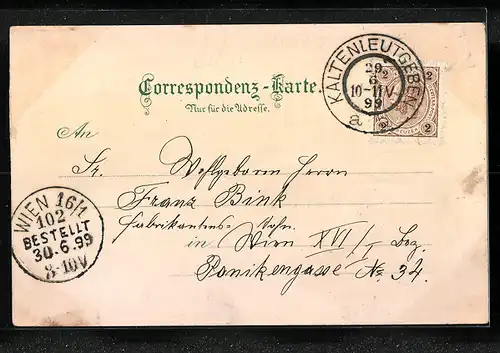 KALTENLEUTGEBEN
29
6
10-11V
99
a
2 2
2 2
KREUZER
Correspondenz-Karte.
Nur für die Adresse.
An
Sr. Wohlgeboren Herrn
Franz Bink
Fabrikantens-Sohn.
in Wien XVI/1 Bez.
Panikengasse No. 34.
WIEN 16/1
102
BESTELLT
30.6.99
8-10V